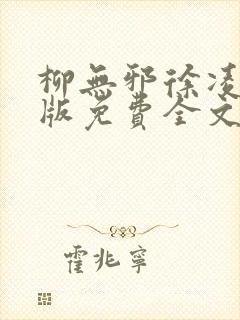 柳無邪徐凌
版免費全文
霍兆寧